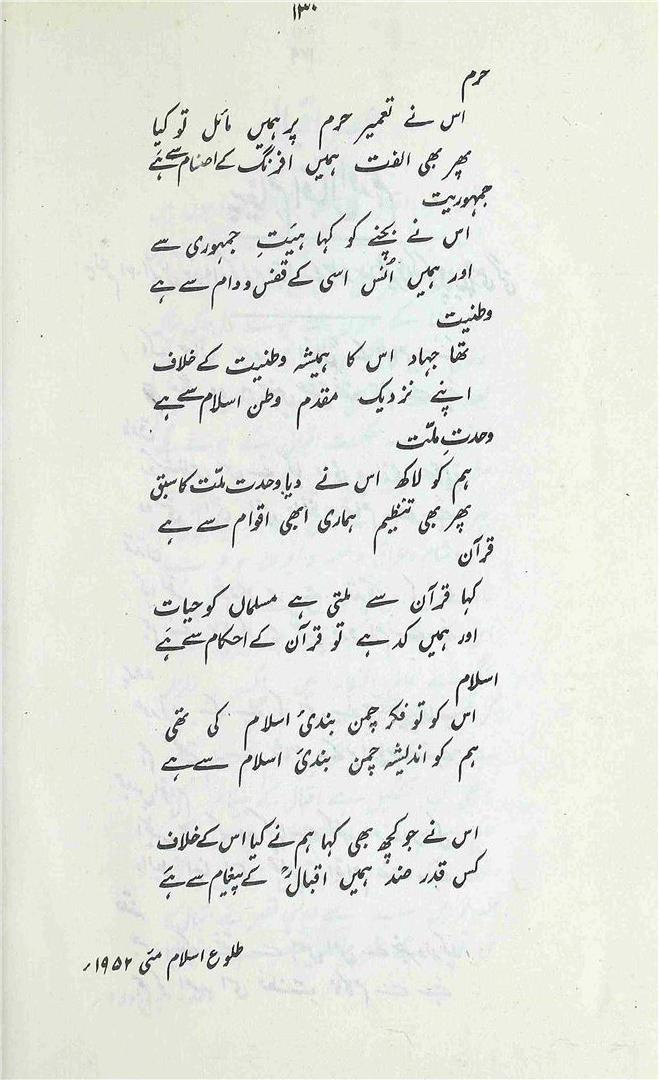 ۱۳۰
حرم
اس نے تعمیر حرم پر ہمیں مائل تو کیا
پھر بھی الفت ہمیں افرنگ کے اصنام سے ہے
جمہوریت
اس نے بچنے کو کہا ہیئتِ جمہوری سے
اور ہمیں اُنس اسی کے قفس و دام سے ہے
وطنیت
تھا جہاد اس کا ہمیشہ وطنیت کے خلاف
اپنے نزدیک مقدم وطن اسلام سے ہے
وحدتِ ملّت
ہم کو لاکھ اس نے دیا وحدت ملّت کا سبق
پھر بھی تنظیم ہماری ابھی اقوام سے ہے
قرآن
کہا قرآن سے ملتی ہے مسلماں کو حیات
اور ہمیں کد ہے تو قرآن کے احکام سے ہے
اسلام
اس کو تو فکر چمن بندیٔ اسلام کی تھی
ہم کو اندیشہ چمن بندیٔ اسلام سے ہے
اس نے جو کچھ بھی کہا ہم نے کیا اس کے خلاف
کس قدر ضد ہمیں اقبالؒ کے پیغام سے ہے
طلوع اسلام مئی ۱۹۵۲ء